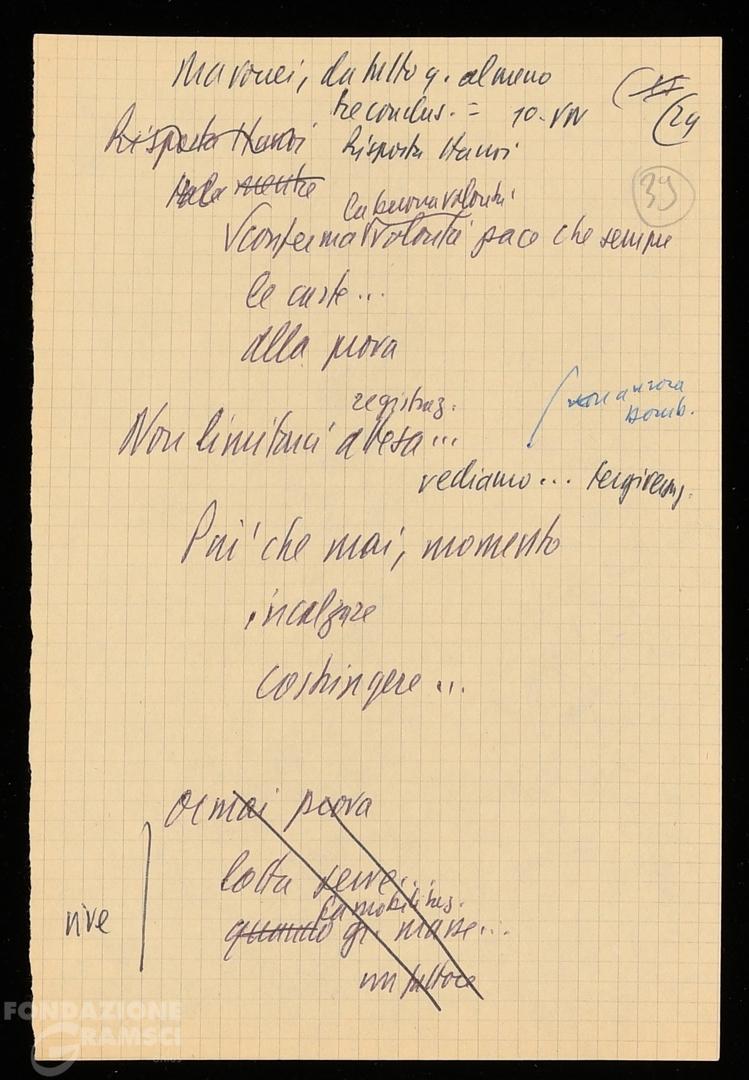 Ma vonci, da tutto q. almeno
tre conclus. = 10. VN
24
Risposta Hanoi Risposta Hanoi
39
la buona volontà
conferma volontà pace che sempre
le carte...
alla prova
registraz.
non ancora
bomb.
Non limitarci attesa...
vediamo...
Più che mai, momento
incalzare
costringere...
Ormai prova
lotta serve...
la mobilitaz.
quando gr. masse...
un fattore
vive
FONDAZIONE
GRAMSCI